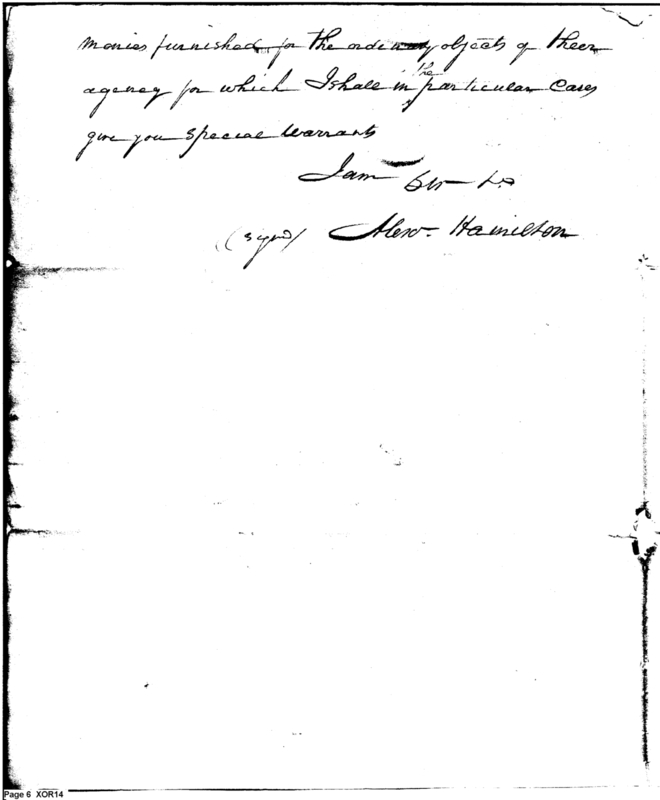 monies furnished for the ordinary objects of their
agency for which I shall in the particular Cases
give you special Warrants
I am
(signd) Alexr. Hamilton
Page 6 XOR14